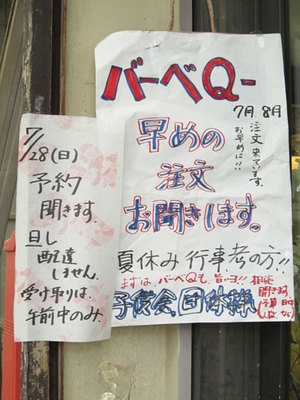 バーベQー
7月.8月
注文来ています。
お早めに!!
早めの
注文
お聞きします。
夏休み行事考の方!!
まずは、バーベQも旨いヨ!!
相談
聞きます
予算
子供会、団体様
7/28(日)
予約
聞きます
但し
配達
しません。
受け取りは、
午前中のみ